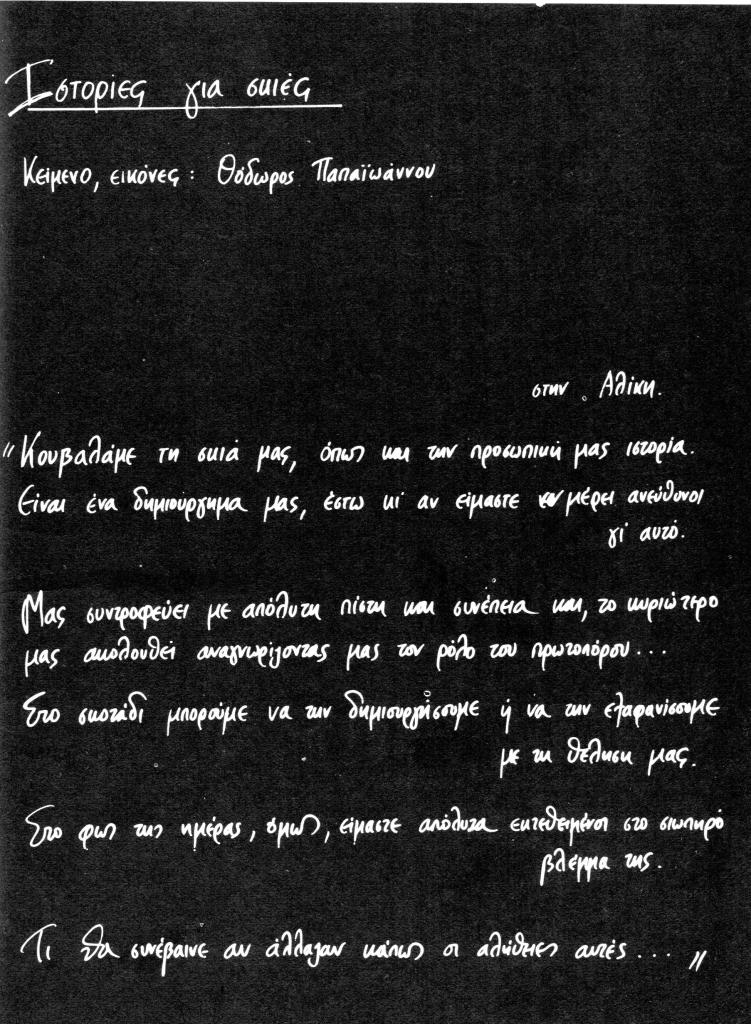 Ιστορίες για σκιές
Κείμενο, εικόνες: Θόδωρος Παπαϊωάννου
στην Αλίκη.
"Κουβαλάμε τη σκιά μας, όπως και την προσωπική μας ιστορία.
Είναι ένα δημιούργημα μας, έστω κι' αν είμαστε εν μέρει ανεύθυνοι
γι' αυτό.
Μας συντροφεύει με απόλυτη πίστη και συνέπεια και, το κυριώτερο
μας ακολουθεί αναγνωρίζοντας μας τον ρόλο του πρωτοπόρου...
Στο σκοτάδι μπορούμε να την δημιουργήσουμε ή να την εξαφανίσουμε
με τη θέληση μας.
Στο φως της ημέρας, όμως, είμαστε απόλυτα εκτεθειμένοι στο σιωπηρό
βλέμμα της.
Τι θα συνέβαινε αν άλλαζαν κάπως οι αλήθειες αυτές..."